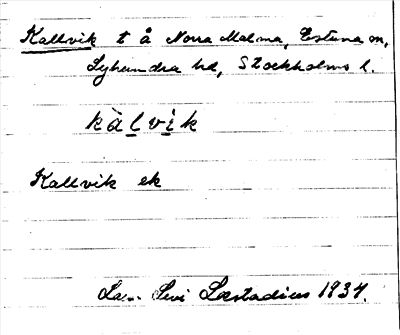 Kallvik t å Norra Malma, Estuna sn,
Lyhundra hd, Stockholms l.
kàlvik
Kallvik ek
Levi Læstadius 1934.